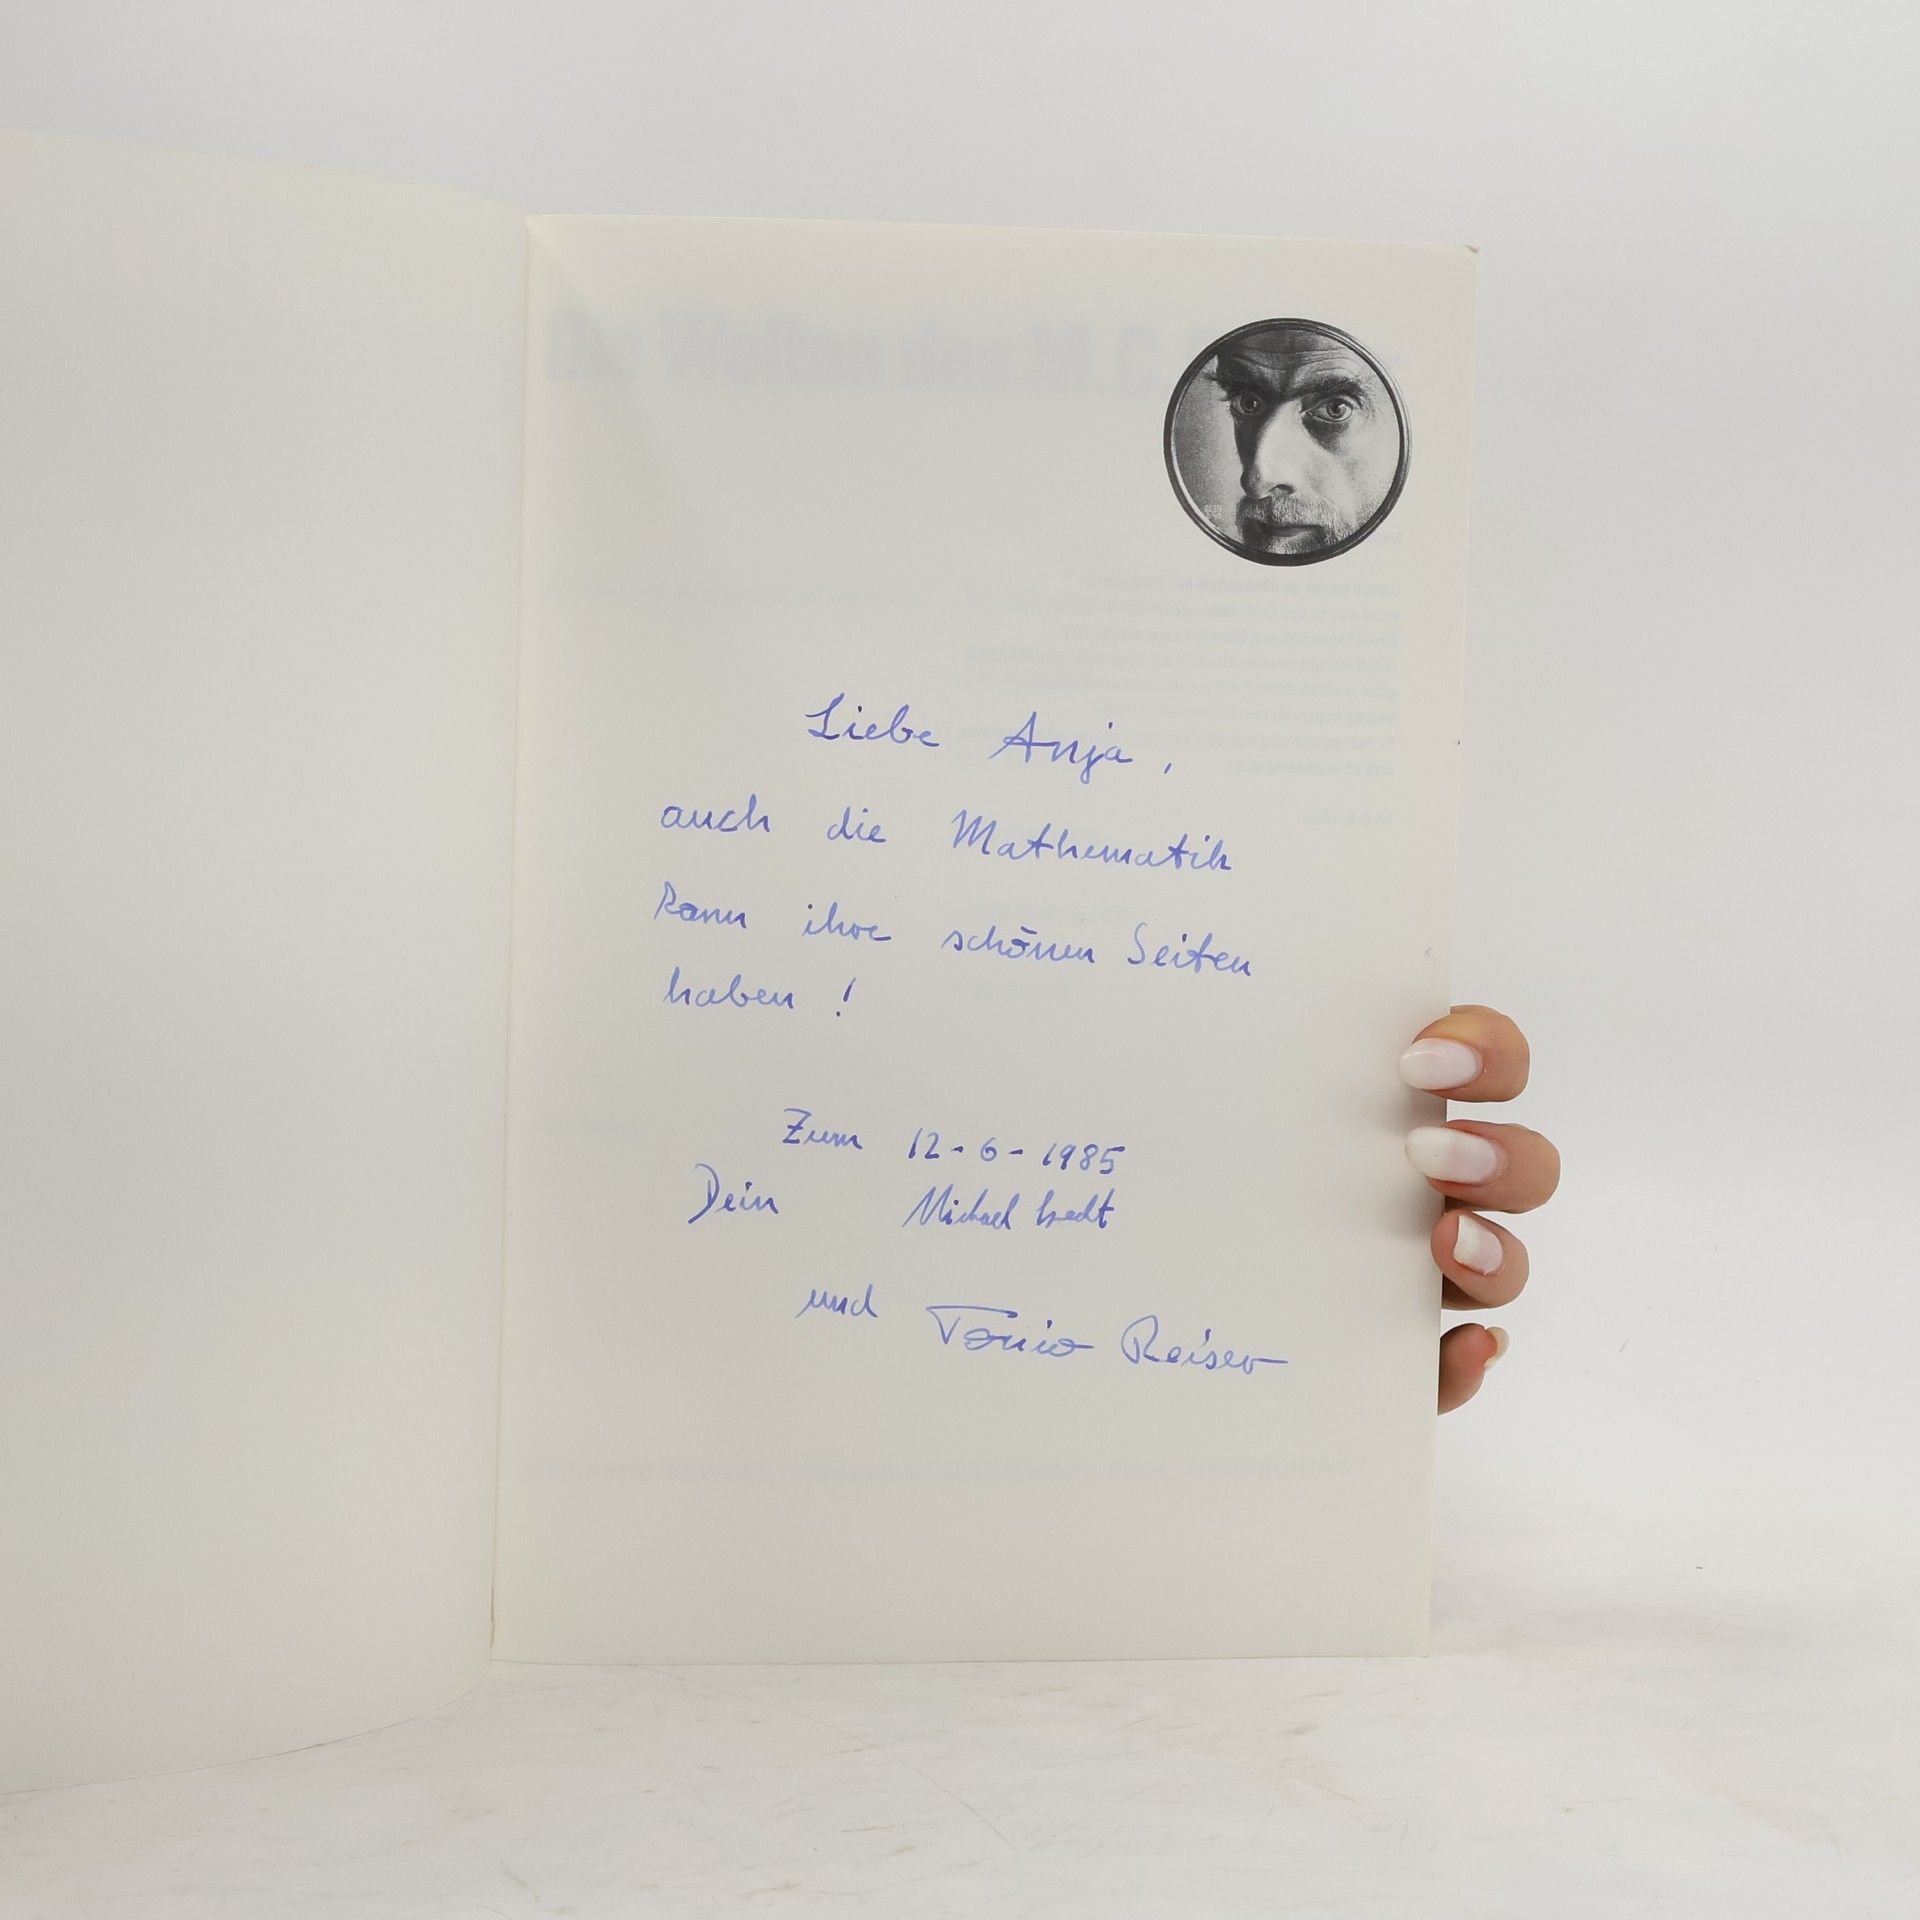 Liebe Anja,
auch die Mathematik
kann ihre schönen Seiten
haben!
Zum 12-6-1985
Dein Michael
und Tonio Reiser